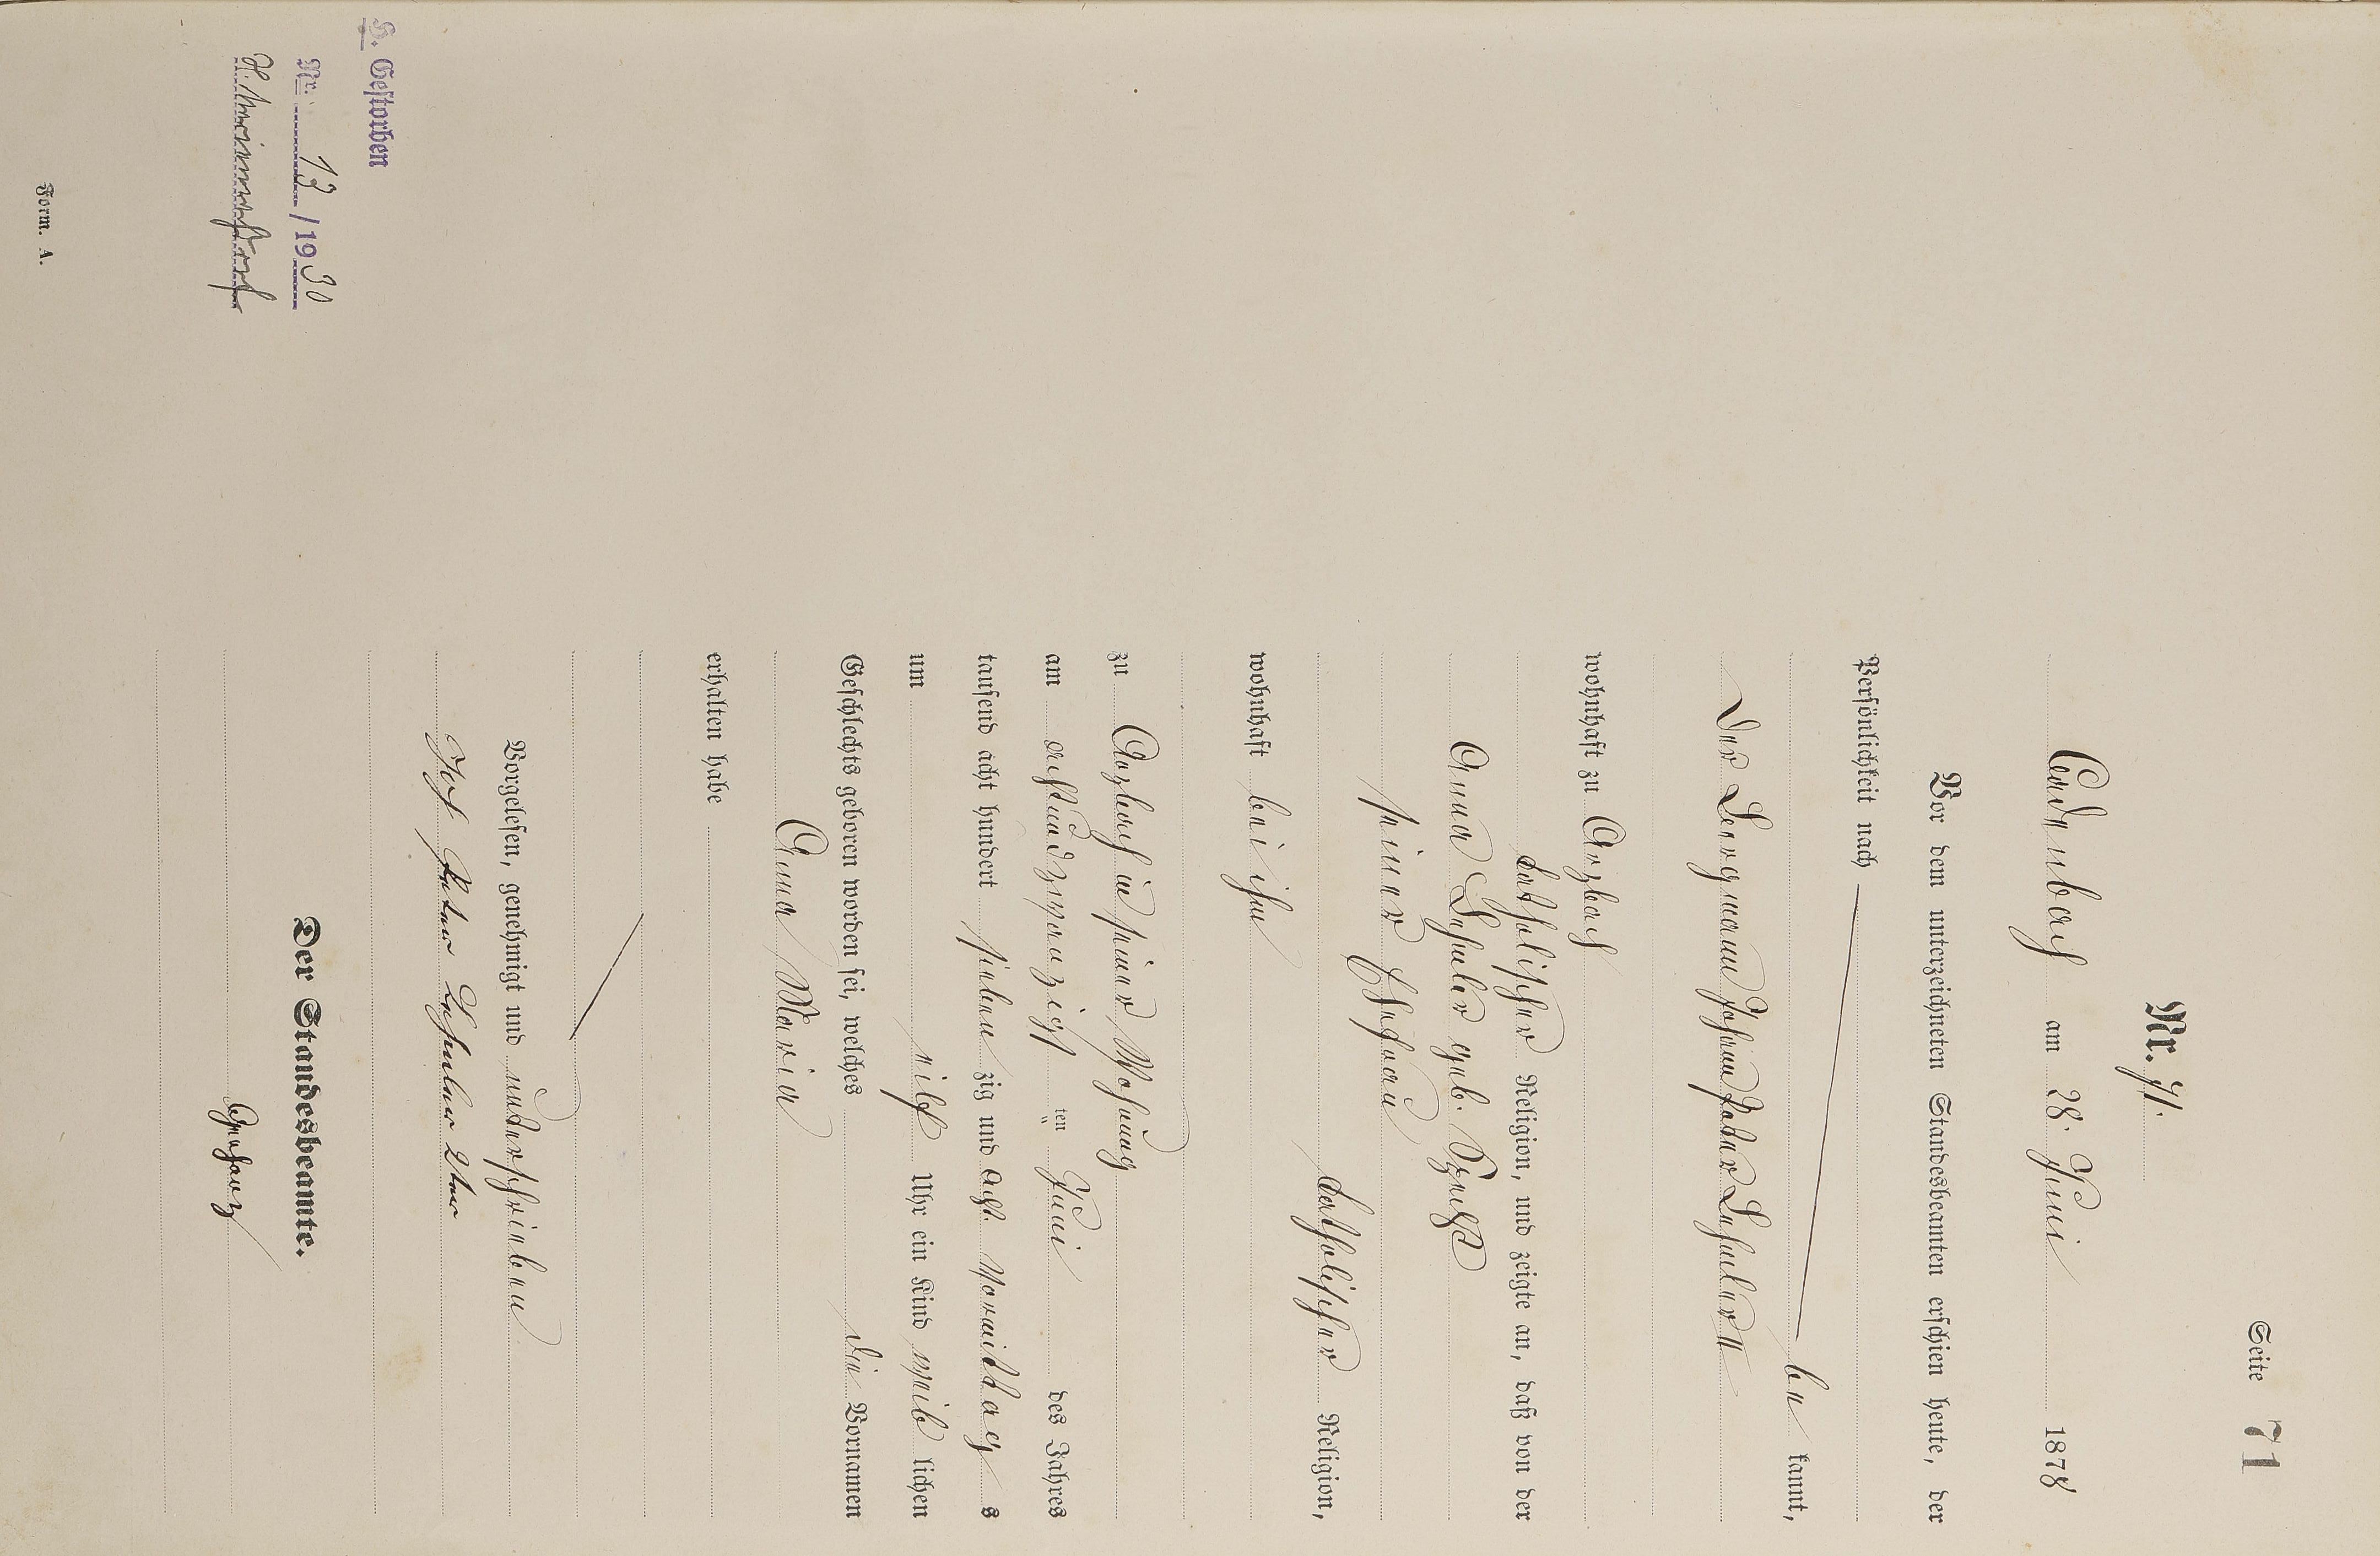 Seite 71
Nr. 71.
Cadenbach am 28. Juni 1878
Vor dem unterzeichneten Standesbeamten erschien heute, der
Persönlichkeit nach
be kannt,
der Bergmann Johann Peter Lehnler II
wohnhaft zu Arzbach
katholischer Religion, und zeigte an, daß von der
Anna Lehnler geb.
seiner Ehefrau
katholischer Religion,
wohnhaft bei ihm
zu Arzbach in seiner Wohnung
am achtundzwanzigst ten Juni des Jahres
tausend acht hundert sieben zig und acht Vormittag s
um elf Uhr ein Kind weib lichen
Geschlechts geboren worden sei, welches die Vornamen
Anna Maria
erhalten habe
Vorgelesen, genehmigt und unterschrieben
Joh Peter Lehnler 2ter
Der Standesbeamte.
H. Gestorben
Nr. 13 / 1930
Form. A.